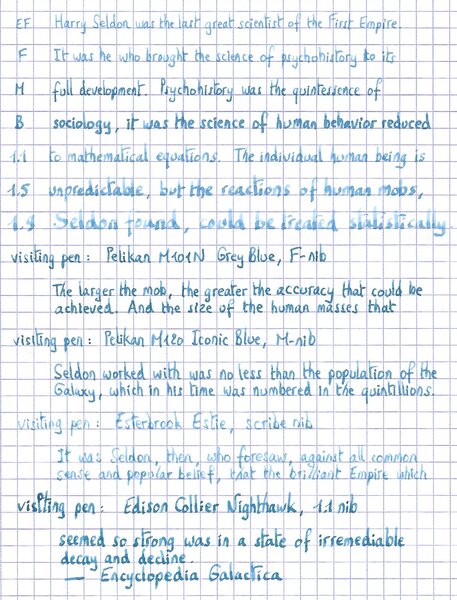 EF Harry Seldon was the last great scientist of the First Empire.
F It was he who brought the science of psychohistory to its
M full development. Psychohistory was the quintessence of
B sociology, it was the science of human behavior reduced
1.1 to mathematical equations. The individual human being is
1.5 unpredictable, but the reactions of human mobs,
1.9 Seldon found, could be treated statistically.
visiting pen: Pelikan M101N Grey Blue, F-nib
The larger the mob, the greater the accuracy that could be
achieved. And the size of the human masses that
visiting pen: Pelikan M120 Iconic Blue, M-nib
Seldon worked with was no less than the population of the
Galaxy, which in his time was numbered in the quintillions.
visiting pen: Esterbrook Estie, scribe nib
It was Seldon, then, who foresaw, against all common
sense and popular belief, that the brilliant Empire which
visiting pen: Edison Collier Nighthawk, 1.1 nib
seemed so strong was in a state of irremediable
decay and decline.
— Encyclopedia Galactica